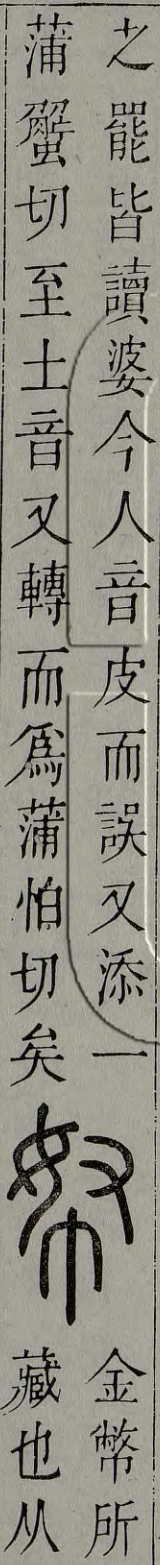 之罷皆讀婆今人音皮而誤又添一
蒲蠏切至士音又轉而爲蒲怕切矣
帑
金幣所
藏也从